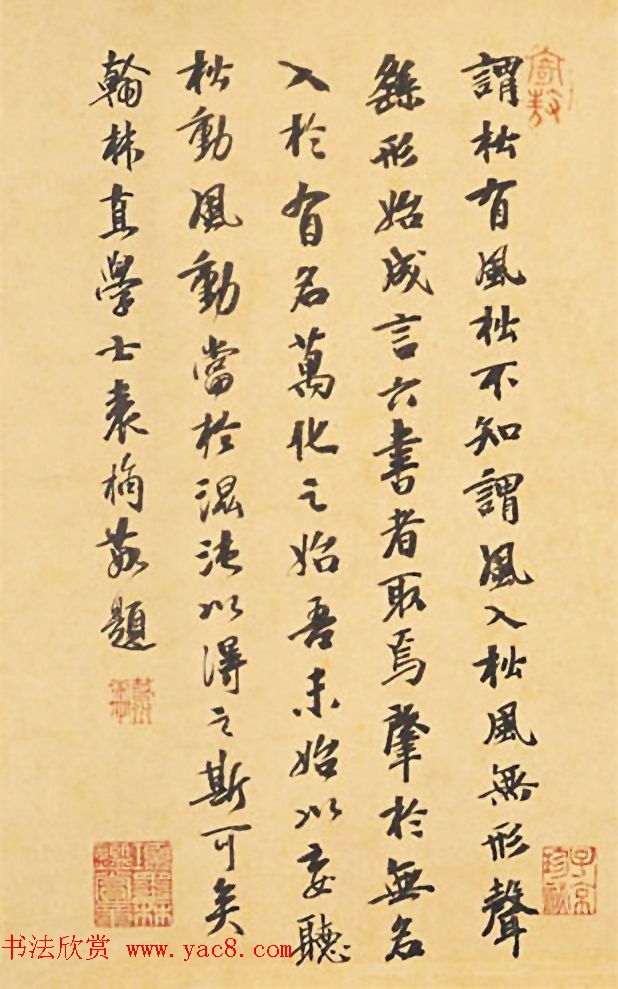 謂松有風松不知謂風入松風無形聲
繇形始成言六書者取焉肇於無名
入於有名萬化之始吾未始以妄聽
松動風動當於混沌以得之斯可矣
翰林直學士袁桷敬題
书法欣赏 www.yac8.com